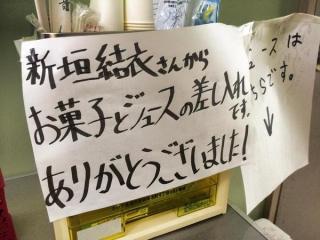 新垣結衣さんから
お菓子とジュースの差し入れです。
ありがとうございました!
ュースは
ちらです。
↓